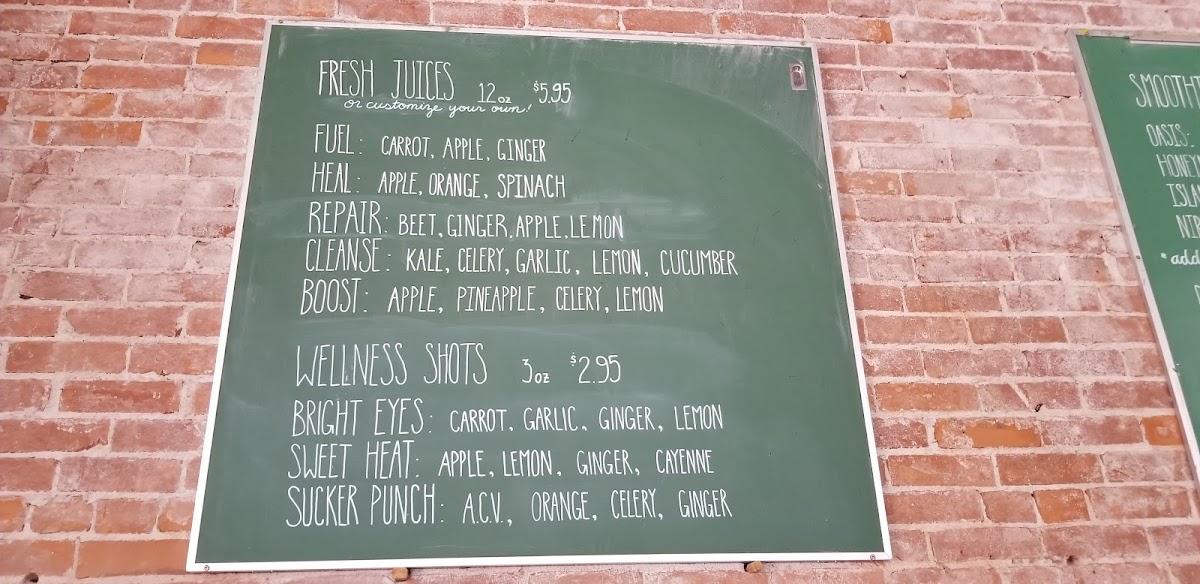 FRESH JUICES 12oz $5.95
or customize your own!
FUEL: CARROT, APPLE, GINGER
HEAL: APPLE, ORANGE, SPINACH
REPAIR: BEET, GINGER, APPLE, LEMON
CLEANSE: KALE, CELERY, GARLIC, LEMON, CUCUMBER
BOOST: APPLE, PINEAPPLE, CELERY, LEMON
WELLNESS SHOTS 3oz $2.95
BRIGHT EYES: CARROT, GARLIC, GINGER, LEMON
SWEET HEAT: APPLE, LEMON, GINGER, CAYENNE
SUCKER PUNCH: A.C.V., ORANGE, CELERY, GINGER
OASIS:
HONEY
*add